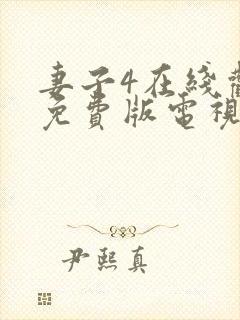 妻子4在綫
免費版電視
尹熙真